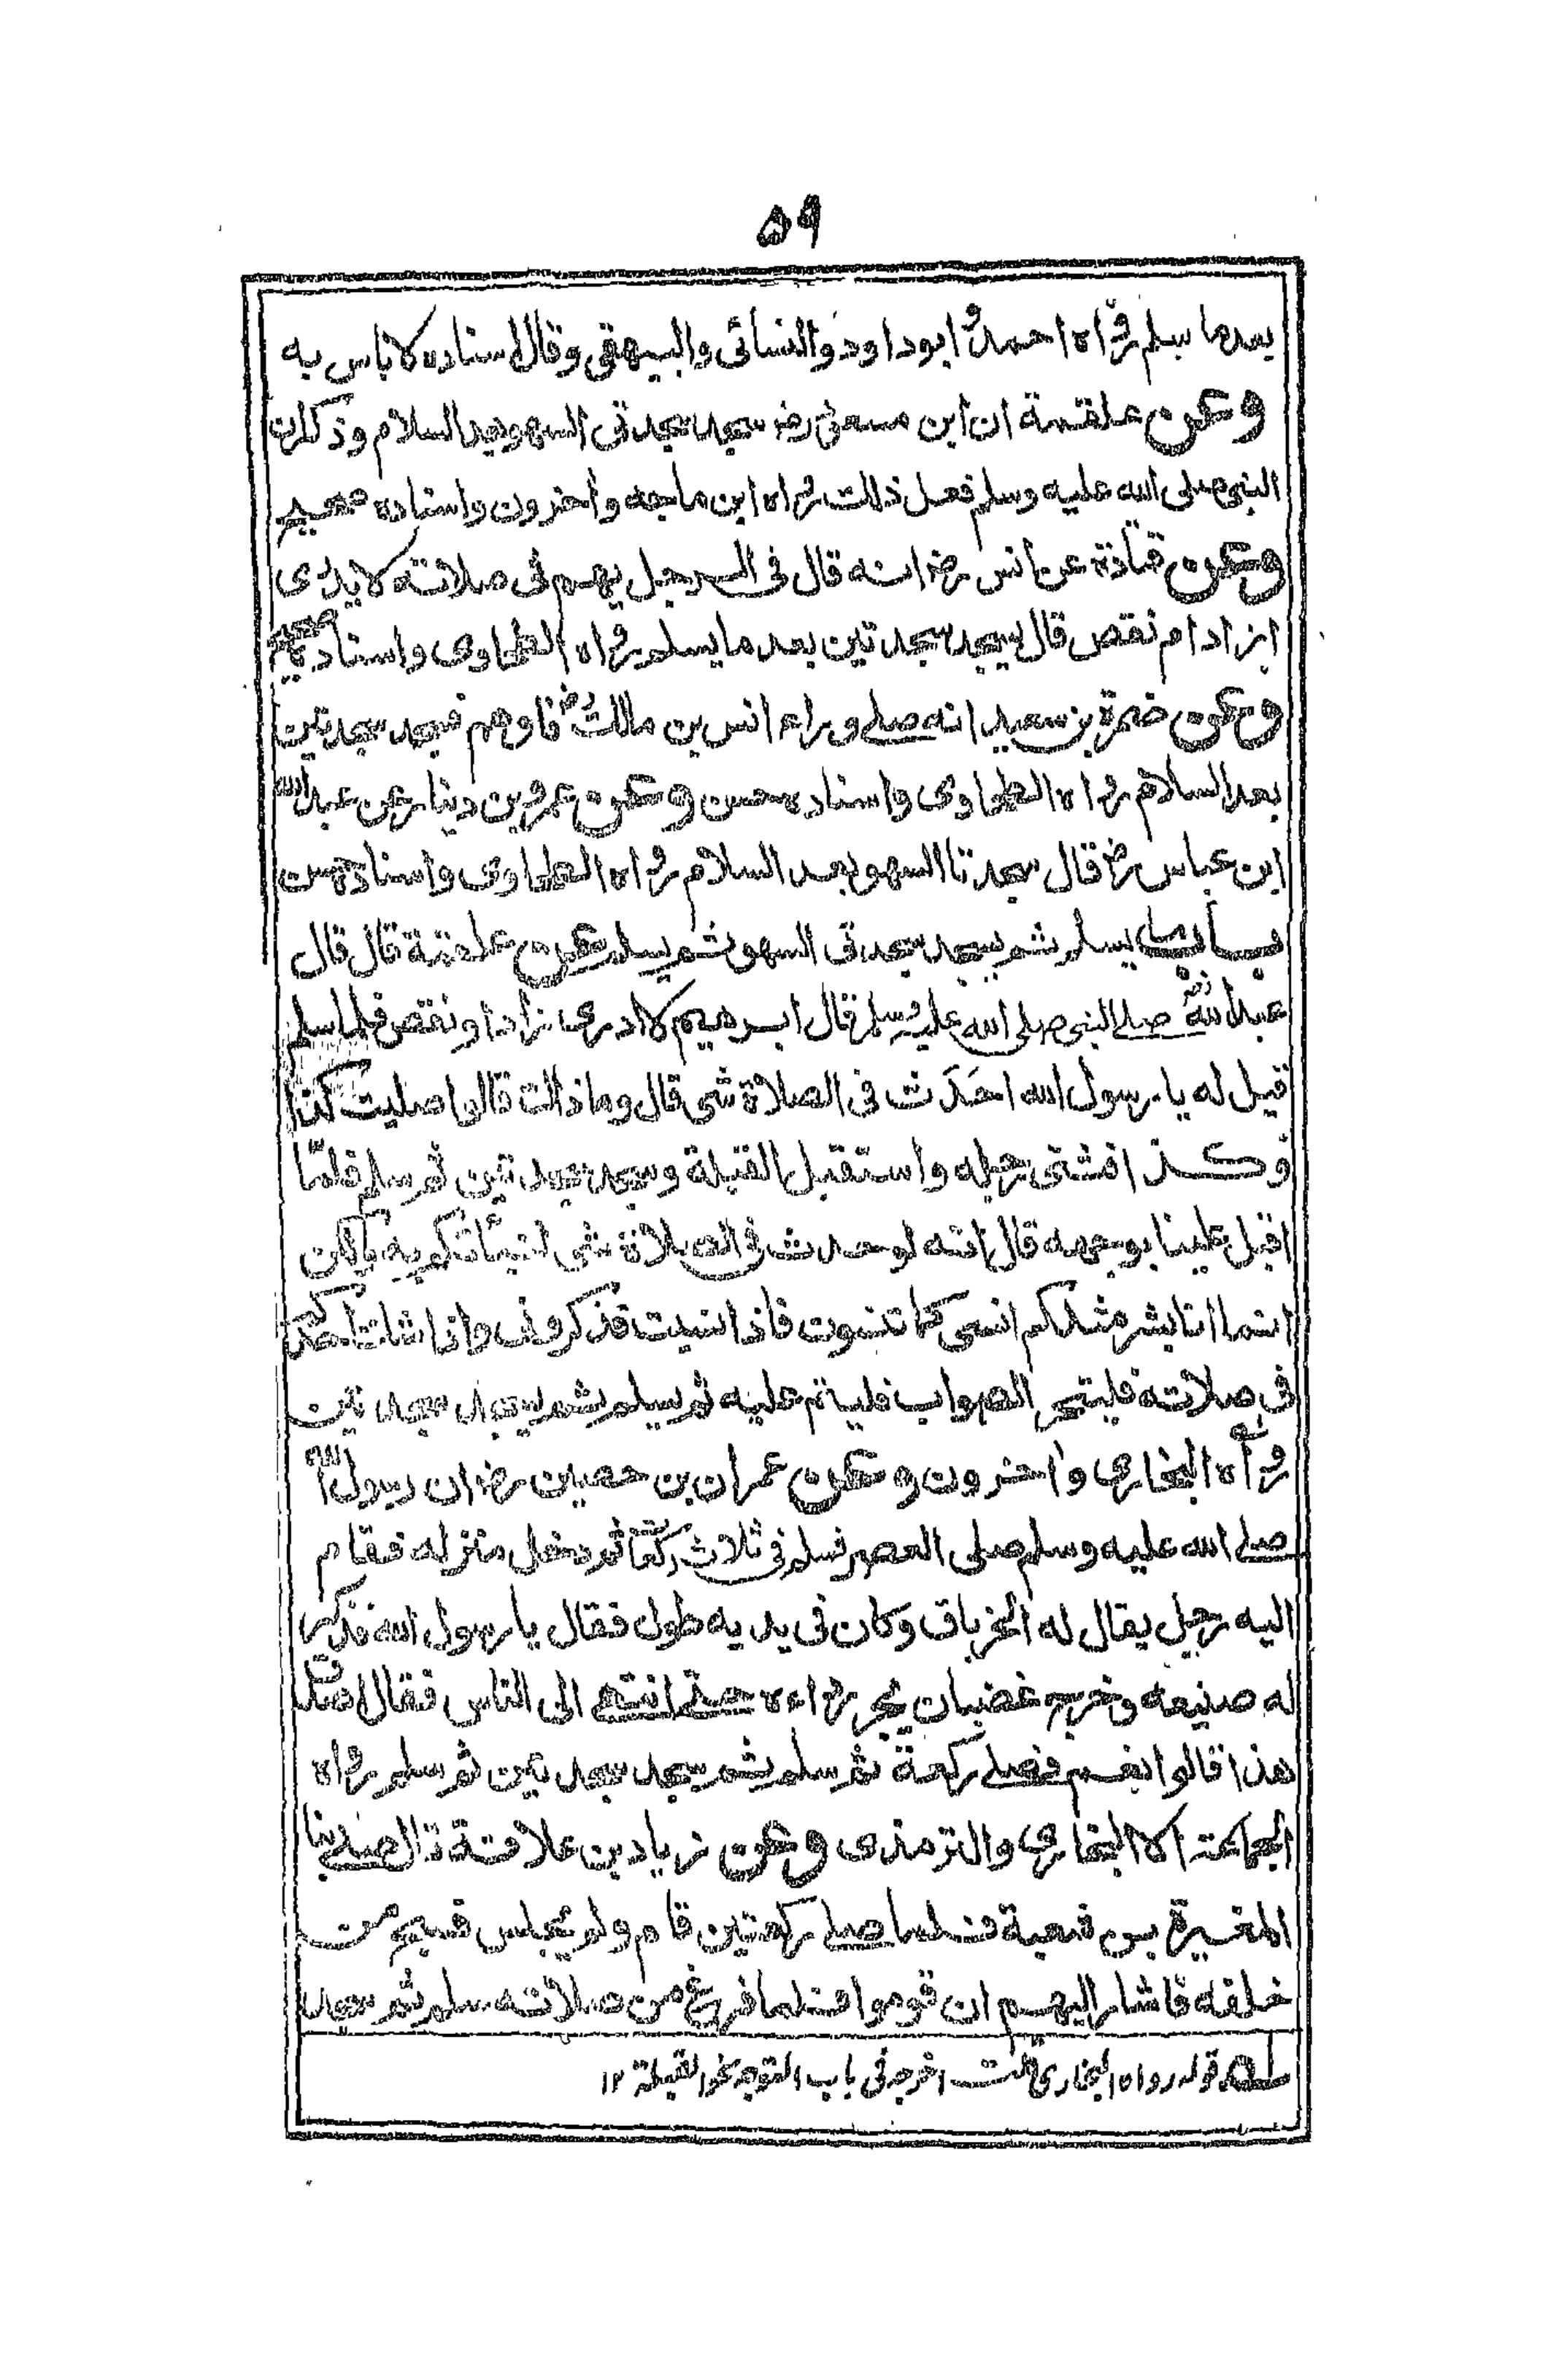 ۵۹
بعدما يسلم رواه احمد وابوداود والنسائى والبيهقى وقال اسناده لاباس به
وعن علقمة ان ابن مسعود رض سجد سجدتى السهو بعد السلام وذكر ان
النبى صلى الله عليه وسلم فعل ذلك رواه ابن ماجه واخرون واسناده صحيح
وعن قتادة عن انس رض انه قال فى الرجل يهم فى صلاته لا يدرى
ازاد ام نقص قال يسجد سجدتين بعد ما يسلم رواه الطحاوى واسناده صحيح
وعن ضمرة بن سعيد انه صلے وراء انس بن مالك رض فاوهم فسجد سجدتين
بعد السلام رواه الطحاوى واسناده حسن وعن عمرو بن دينار عن عبد الله
ابن عباس رض قال سجدتا السهو بعد السلام رواه الطحاوى واسناده حسن
باب ما يسلم ثم يسجد سجدتى السهو ثم يسلم عن علقمة قال قال
عبد الله رض صلے النبى صلى الله عليه وسلم قال ابرهيم لا ادرى زاد او نقص فلما سلم
قيل له يا رسول الله احدث فى الصلاة شى قال وما ذاك قالوا صليت كذا
وكذا فثنى رجله واستقبل القبلة وسجد سجدتين ثم سلم فلما
اقبل علينا بوجهه قال انه لو حدث فى الصلاة شى لنبأتكم به ولكن
انما انا بشر مثلكم انسى كما تنسون فاذا نسيت فذكرونى واذا شك احدكم
فى صلاته فليتحر الصواب فليتم عليه ثم يسلم ثم يسجد سجدتين
رواه البخارى واخرون وعن عمران بن حصين رض ان رسول الله
صلے الله عليه وسلم صلى العصر فسلم فى ثلاث ركعات ثم دخل منزله فقام
اليه رجل يقال له الخرباق وكان فى يديه طول فقال يا رسول الله فذكر
له صنيعه وخرج غضبان يجر رداءه حتے انتهے الى الناس فقال اصدق
هذا قالوا نعم فصلے ركعة ثم سلم ثم سجد سجدتين ثم سلم رواه
الجماعة الا البخارى والترمذى وعن زياد بن علاقة قال صلے بنا
المغيرة بن شعبة فلما صلے ركعتين قام ولم يجلس فسبح من
خلفه فاشار اليهم ان قوموا فلما فرغ من صلاته سلم ثم سجد
له قوله رواه البخارى قلت اخرجه فى باب التوجه نحو القبلة ۱۲